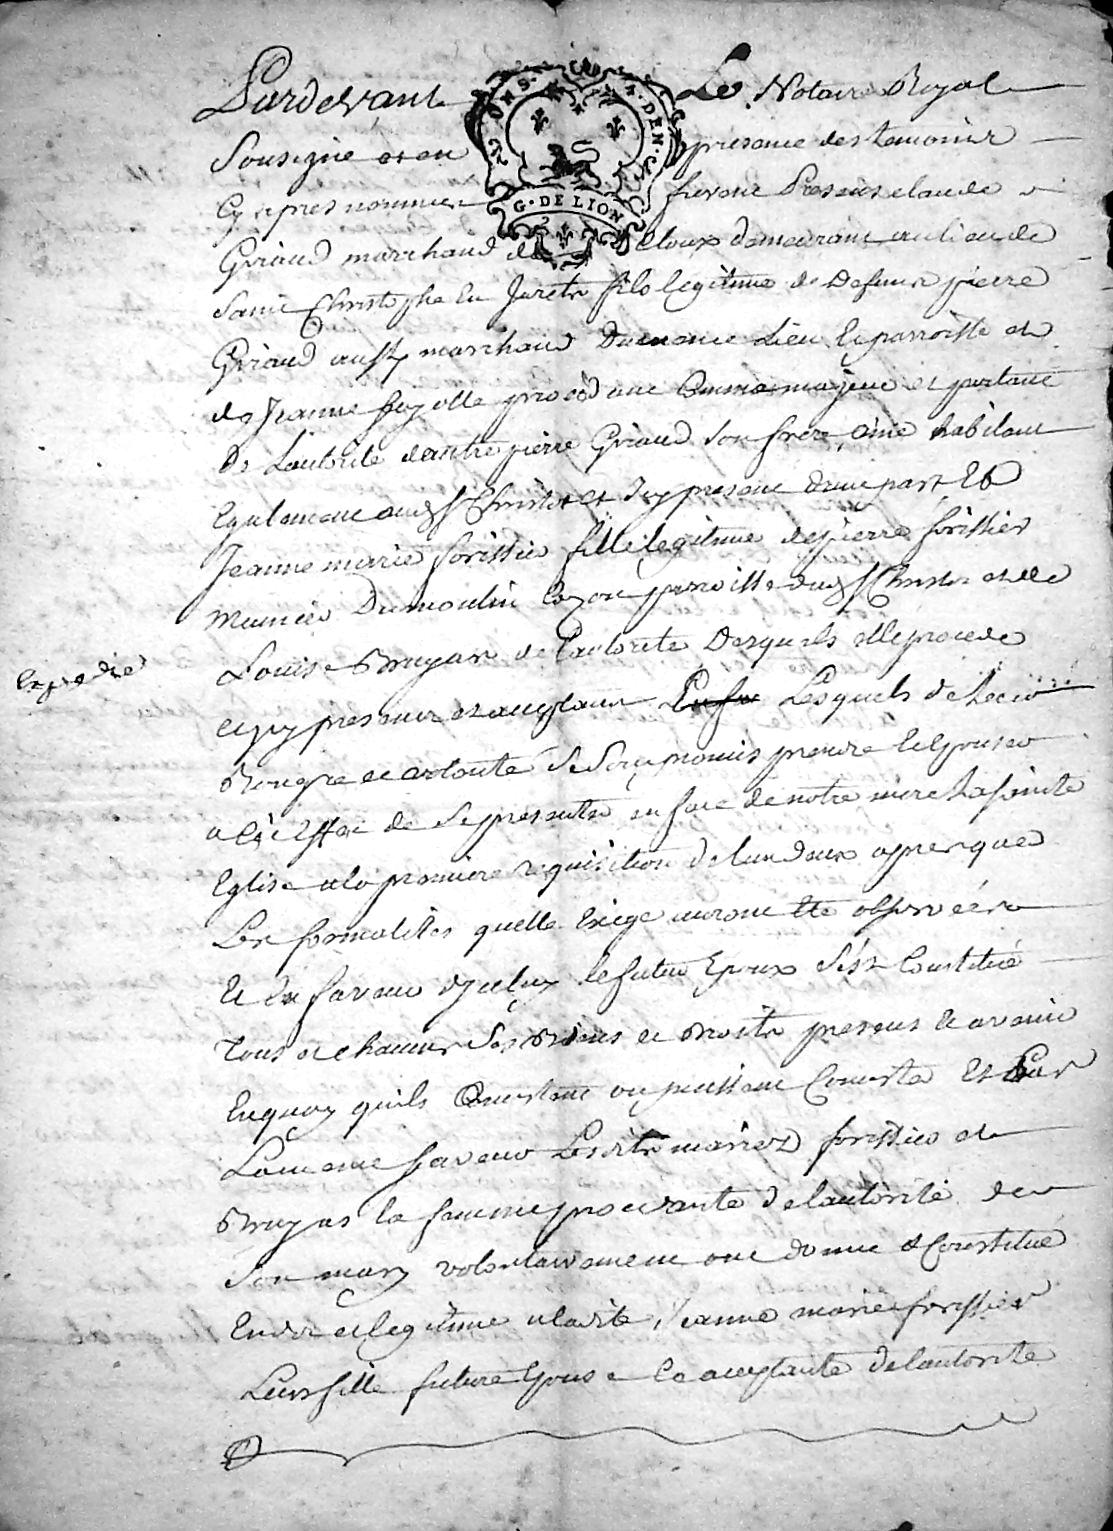 Pardevant Le Notaire Royal
Sousigné et en presance des temoins
Cy apres nommes furent Presens claude
Giraud marchand de cloux demeurant au lieu de
Saint Christophe En Jarets fils legitime de Defunt pierre
Giraud aussy marchand Dumeme Lieu et parroisse et
de Jeanne fayolle procedant Comme majeur et partant
De Lautorité dautre pierre Giraud Son frere ainé habitant
Egalement audt St Christo et Icy presant Dune part Et
Jeanne marie forissier fille legitime de pierre forissier
Munier Du moulin parroisse dudt St Christo et de
Louise Bruyas de Lautorité Desquels elle procede
icy presents et acceptants Lesquels de Leur
Bon gre et volonté Se Sont promis prendre Et Epouser
a cet Effet de Se presenter en face de notre mere La Sainte
Eglise a la premiere requisition de lun deux apres que
Les formalités quelle Exige auront Eté observées
Et En faveur dyceluy le futur Epoux Sest Constitué
Tous et chacuns Ses Biens et Droits presens Et avenir
En quoy quils Consistent ou puissent Consister Et Par
La meme faveur Lesdits mariez forissier et
Bruyas la femme procedante de lautorité de
Son mary volontairement ont donné et Constitué
En dot et legitime a ladite Jeanne marie forissier
Leur fille future Epouse Et acceptante de lautorité
Expedié
G. DE LION